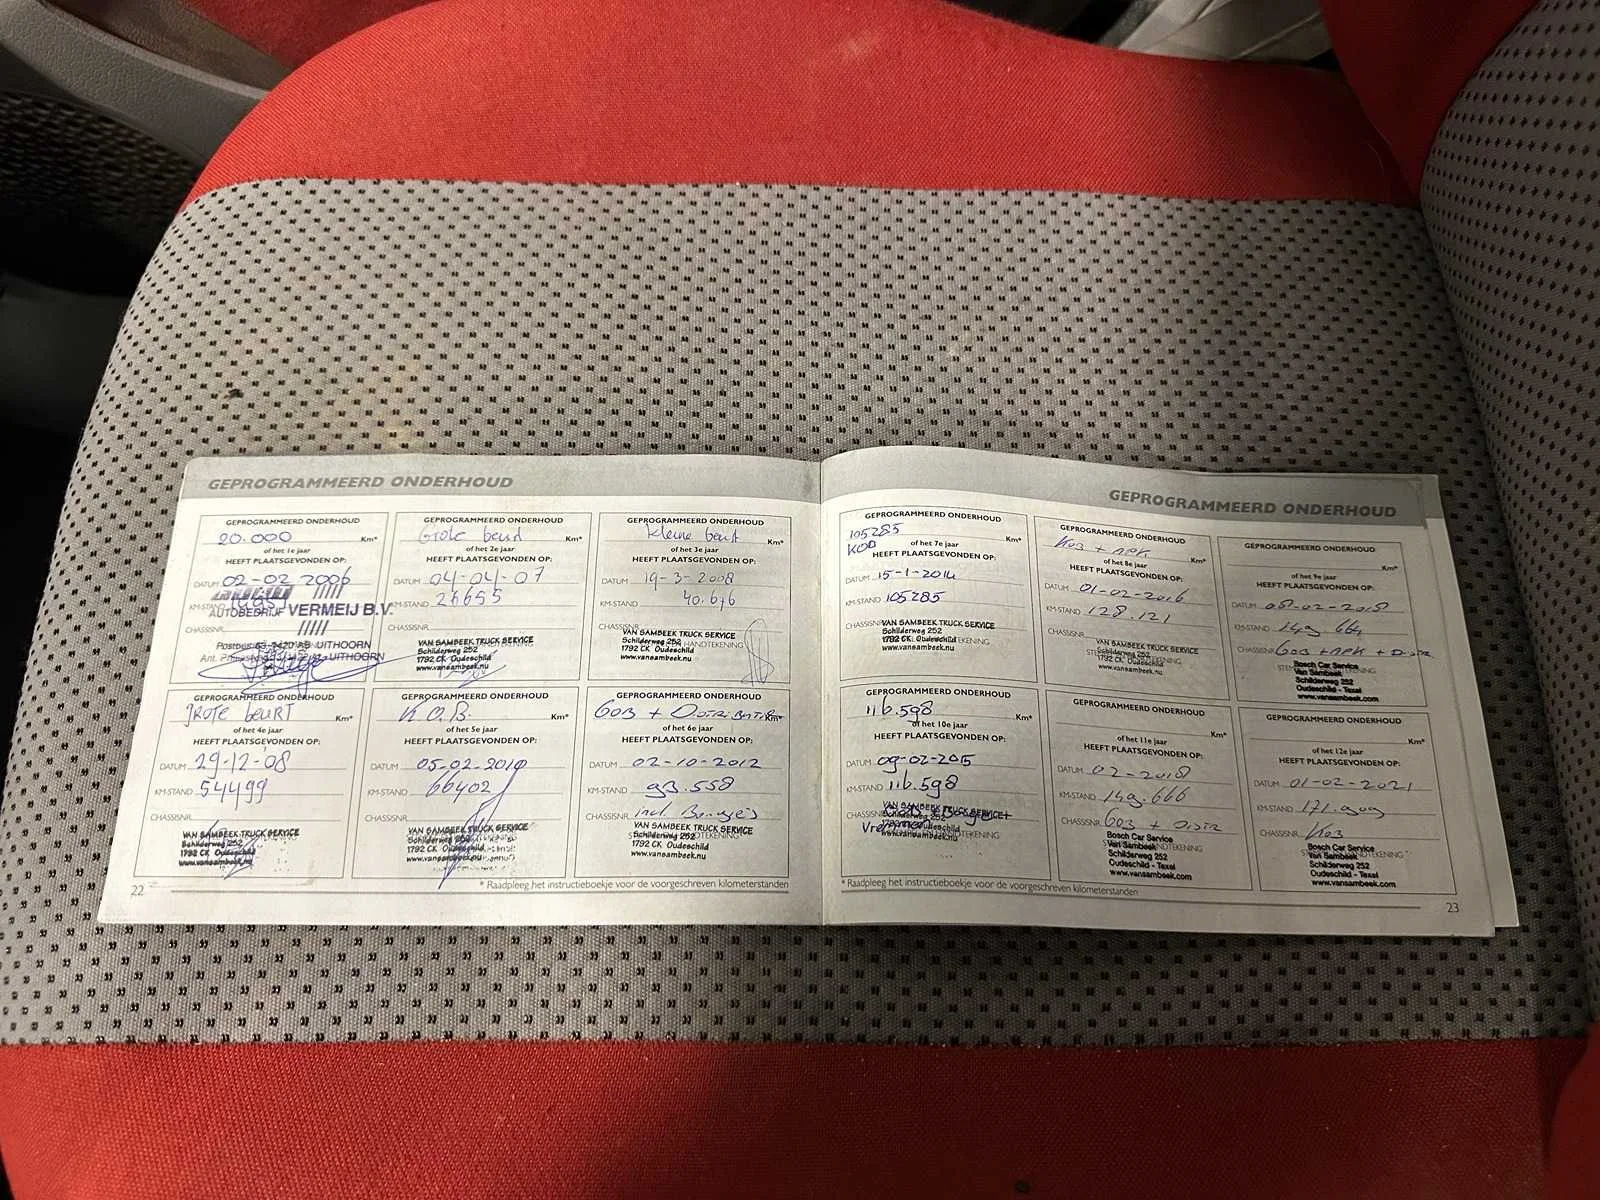 GEPROGRAMMEERD ONDERHOUD
GEPROGRAMMEERD ONDERHOUD
20.000 Km*
of het 1e jaar
HEEFT PLAATSGEVONDEN OP:
DATUM 02-02 2006
KM-STAND
AUTOBEDRIJF VERMEIJ B.V.
CHASSISNR.
UITHOORN
UITHOORN
GEPROGRAMMEERD ONDERHOUD
Grote beurt Km*
of het 2e jaar
HEEFT PLAATSGEVONDEN OP:
DATUM 04-04-07
KM-STAND
CHASSISNR.
VAN SAMBEEK TRUCK SERVICE
Schilderweg 252
1792 CK Oudeschild
www.vansambeek.nu
GEPROGRAMMEERD ONDERHOUD
kleine beurt Km*
of het 3e jaar
HEEFT PLAATSGEVONDEN OP:
DATUM 19-3-2008
KM-STAND 40.676
VAN SAMBEEK TRUCK SERVICE
Schilderweg 252
1792 CK Oudeschild
www.vansambeek.nu
GEPROGRAMMEERD ONDERHOUD
grote beurt Km*
of het 4e jaar
HEEFT PLAATSGEVONDEN OP:
DATUM 29-12-08
KM-STAND 54499
CHASSISNR.
VAN SAMBEEK TRUCK SERVICE
Schilderweg 252
1792 CK Oudeschild
www.vansambeek.nu
GEPROGRAMMEERD ONDERHOUD
K.O.B. Km*
of het 5e jaar
HEEFT PLAATSGEVONDEN OP:
DATUM 05-02-2010
KM-STAND 66402
CHASSISNR.
VAN SAMBEEK TRUCK SERVICE
Schilderweg 252
1792 CK Oudeschild
www.vansambeek.nu
GEPROGRAMMEERD ONDERHOUD
GOB + Distributie Km*
of het 6e jaar
HEEFT PLAATSGEVONDEN OP:
DATUM 02-10-2012
KM-STAND 93.558
CHASSISNR. incl. Bougies
VAN SAMBEEK TRUCK SERVICE
Schilderweg 252
1792 CK Oudeschild
www.vansambeek.nu
22
* Raadpleeg het instructieboekje voor de voorgeschreven kilometerstanden
GEPROGRAMMEERD ONDERHOUD
GEPROGRAMMEERD ONDERHOUD
105285
KOB Km*
of het 7e jaar
HEEFT PLAATSGEVONDEN OP:
DATUM 15-1-2014
KM-STAND 105285
CHASSISNR.
VAN SAMBEEK TRUCK SERVICE
Schilderweg 252
1792 CK Oudeschild
www.vansambeek.nu
GEPROGRAMMEERD ONDERHOUD
KOB + APK Km*
of het 8e jaar
HEEFT PLAATSGEVONDEN OP:
DATUM 01-02-2016
KM-STAND 128.121
CHASSISNR.
VAN SAMBEEK TRUCK SERVICE
Schilderweg 252
1792 CK Oudeschild
www.vansambeek.nu
GEPROGRAMMEERD ONDERHOUD
Km*
of het 9e jaar
HEEFT PLAATSGEVONDEN OP:
DATUM 02-2018
KM-STAND 149.664
CHASSISNR. GOB + APK + Distr.
Bosch Car Service
Van Sambeek
Schilderweg 252
Oudeschild - Texel
www.vansambeek.com
GEPROGRAMMEERD ONDERHOUD
116.598 Km*
of het 10e jaar
HEEFT PLAATSGEVONDEN OP:
DATUM 09-02-2015
KM-STAND 116.598
CHASSISNR.
VAN SAMBEEK TRUCK SERVICE
Schilderweg 252
1792 CK Oudeschild
www.vansambeek.nu
GEPROGRAMMEERD ONDERHOUD
Km*
of het 11e jaar
HEEFT PLAATSGEVONDEN OP:
DATUM 02-2018
KM-STAND 149.666
CHASSISNR. GOB + Distr
Bosch Car Service
Van Sambeek
Schilderweg 252
Oudeschild - Texel
www.vansambeek.com
GEPROGRAMMEERD ONDERHOUD
Km*
of het 12e jaar
HEEFT PLAATSGEVONDEN OP:
DATUM 01-02-2021
KM-STAND 171.909
CHASSISNR. KOB
Bosch Car Service
Van Sambeek
Schilderweg 252
Oudeschild - Texel
www.vansambeek.com
* Raadpleeg het instructieboekje voor de voorgeschreven kilometerstanden
23